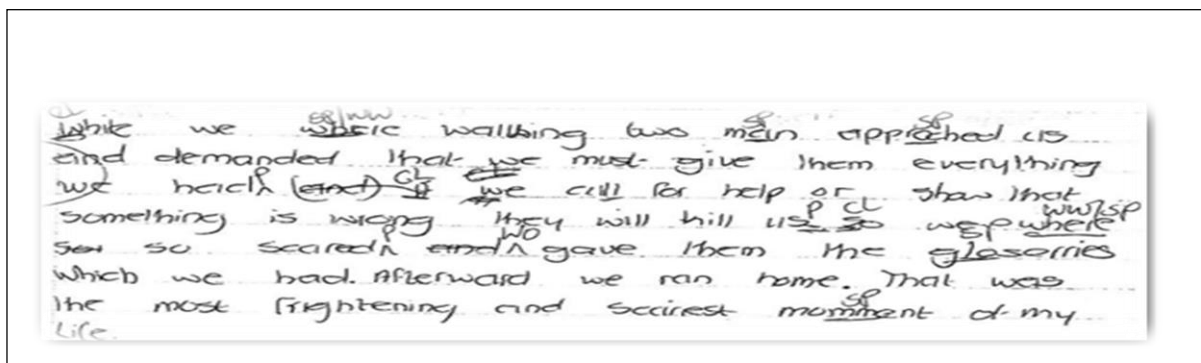 While we where walking two mein apprached us
and demanded that we must give them everything
we had (and) if we call for help or show that
something is wrong they will kill us so we where
so scared and gave them the gloserries
which we had. Afterward we ran home. That was
the most frightening and scairest momment of my
life.